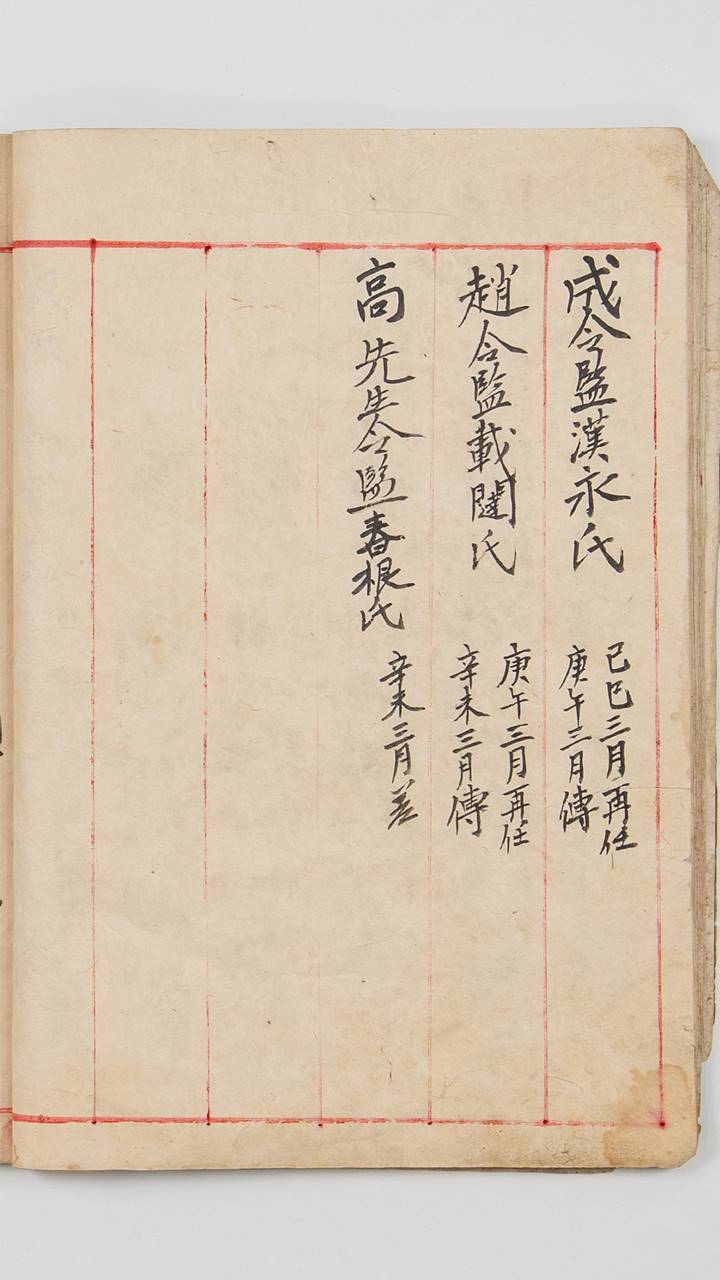 成令監漢永氏
己巳三月再任
庚午三月傳
趙令監載閏氏
庚午三月再任
辛未三月傳
高先生令監春根氏
辛未三月差